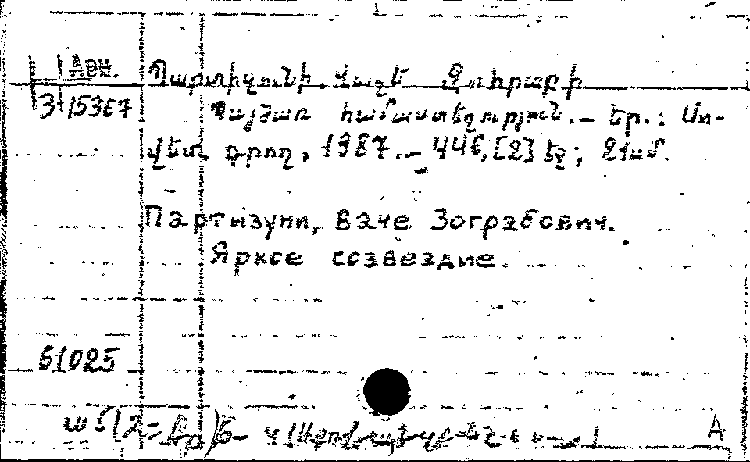 Арм.
Պարտիզունի, Վաչե Զոհրաբի
3 15367
Պայծառ համաստեղություն. – Եր.: Սո-
վետ. գրող, 1987. – 446, [2] էջ; 21սմ.
Партизуни, Ваче Зограбович.
Яркое созвездие.
61025
А